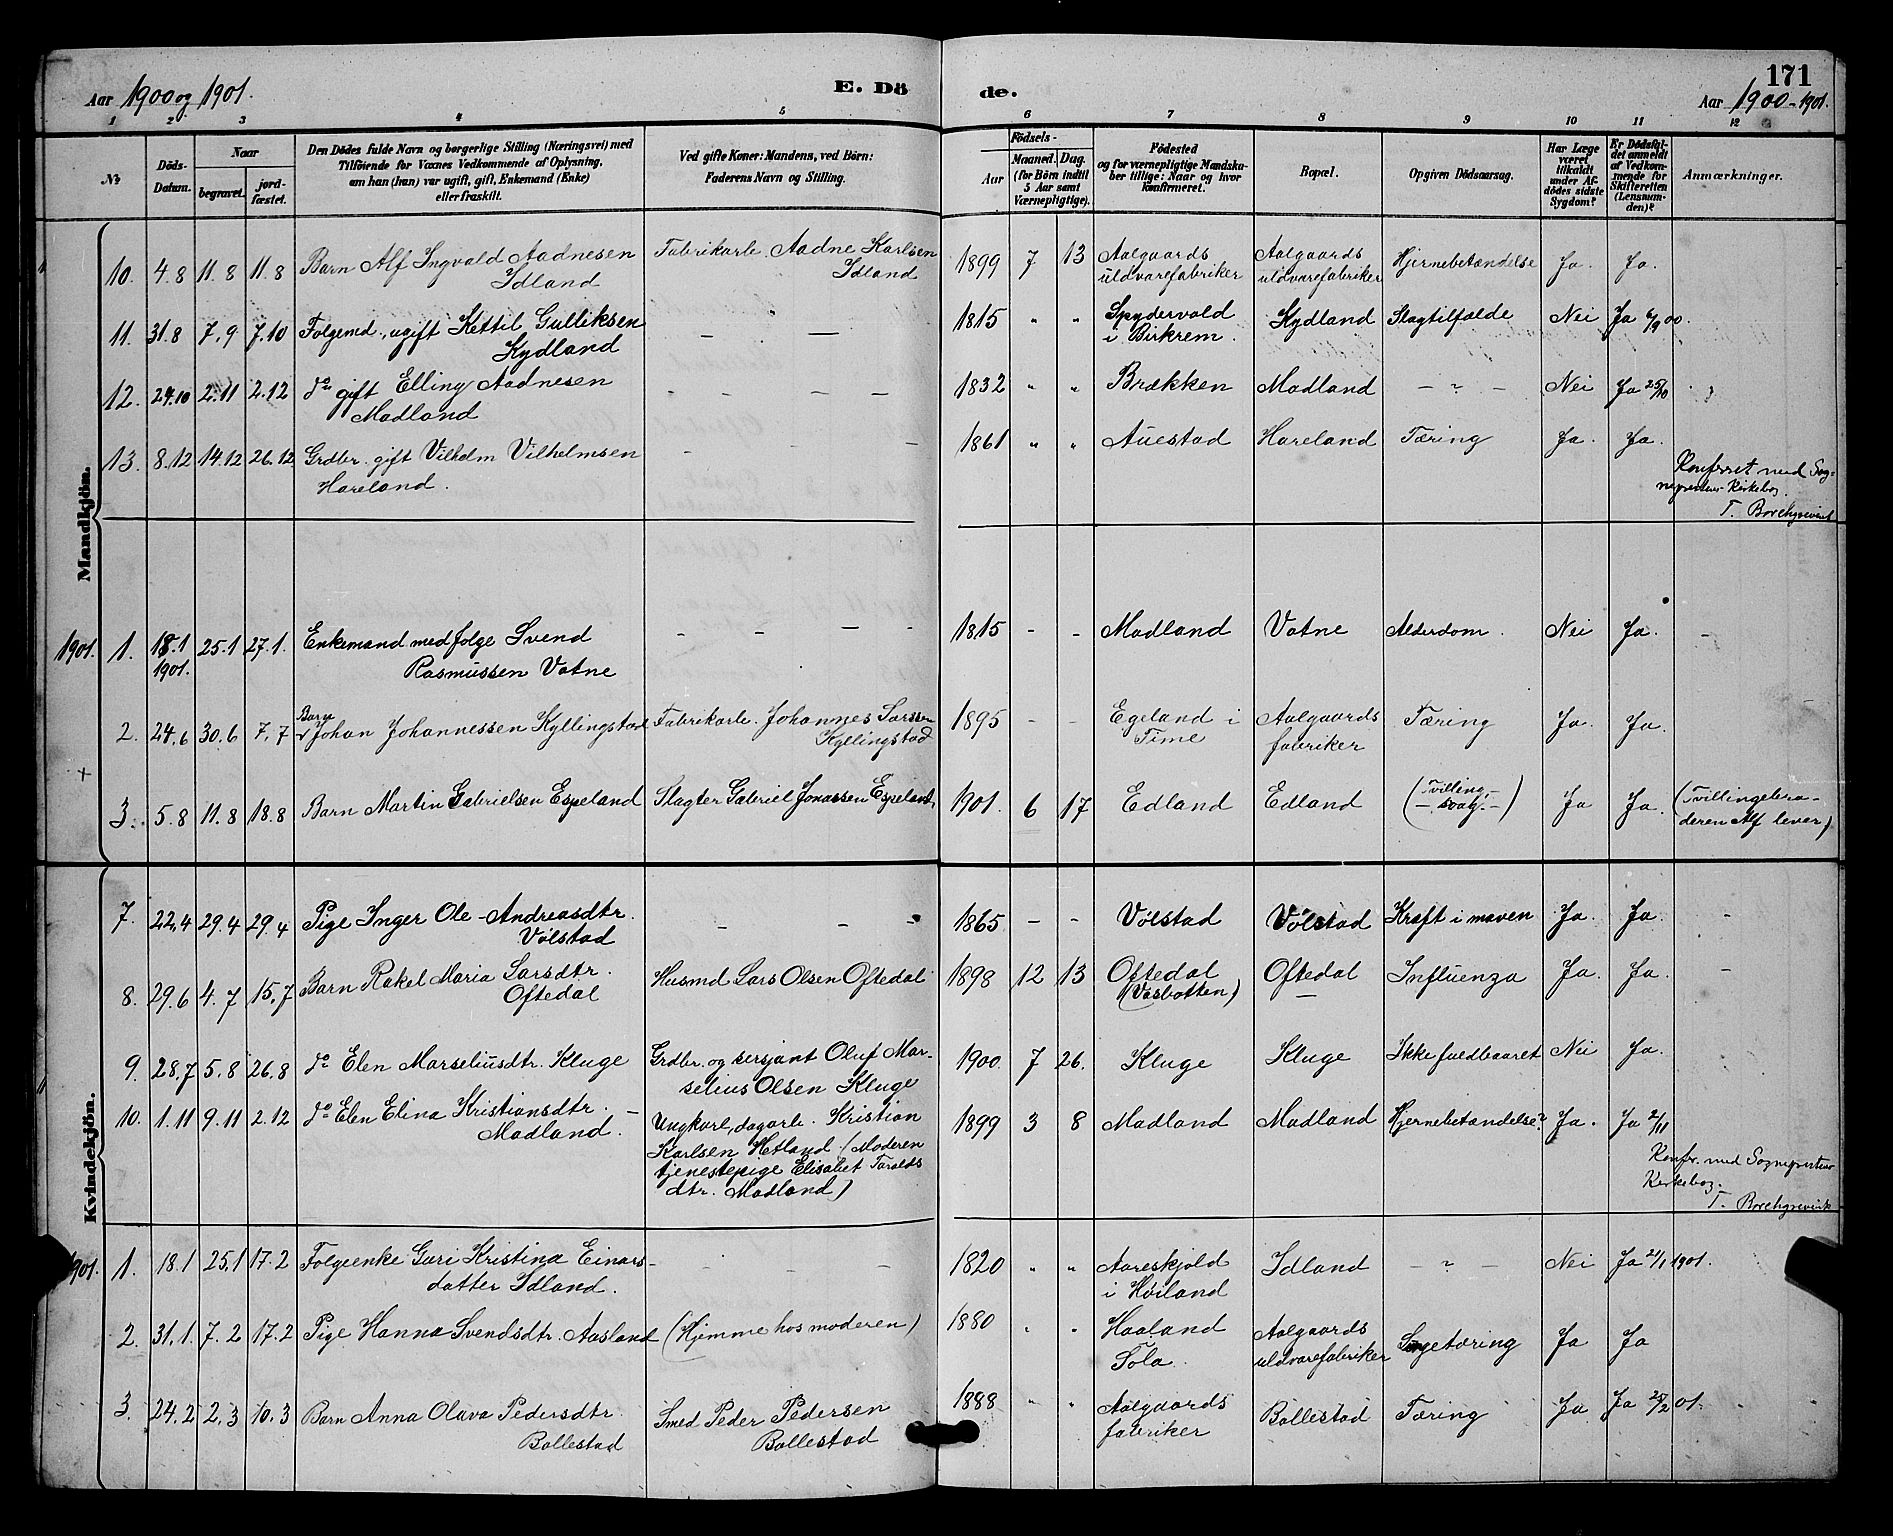 Aar 1900 og 1901.
E. Dö
de.
171
Aar 1900-1901.
1 2 3 4 5 6 7 8 9 10 11 12
№
Döds-
Datum.
Naar
begravet.
jord-
fæstet.
Den Dödes fulde Navn og borgerlige Stilling (Næringsvei) med
Tilföiende for Voxnes Vedkommende af Oplysning,
om han (hun) var ugift, gift, Enkemand (Enke)
eller fraskilt.
Ved gifte Koner: Mandens, ved Börn:
Faderens Navn og Stilling.
Födsels-
Aar
Maaned. Dag.
(for Börn indtil
5 Aar samt
Værnepligtige).
Födested
og for værnepligtige Mandska-
ber tillige: Naar og hvor
konfirmeret.
Bopæl.
Opgiven Dödsaarsag.
Har Læge
været
tilkaldt
under Af-
dödes sidste
Sygdom?
Er Dödsfal-
det anmeldt
af Vedkom-
mende for
Skifteretten
(Lensman-
den)?
Anmærkninger.
Mandkjön.
10. 4.8 11.8 11.8 Barn Alf Ingvald Aadnesen Fabrikarb. Aadne Karlsen 1899 7 13 Aalgaards Aalgaards Hjernebetændelse Ja. Ja.
Idland Idland uldvarefabriker uldvarefabriker
11. 31.8 7.9 7.10 Folgemd., ugift Kettil Gulliksen — — 1815 " " Spydervold Kydland Slagtilfælde Nei Ja 6/9 00.
Kydland i Birkrem.
12. 24.10 2.11 2.12 do gift Elling Aadnesen - - - 1832 " " Brækken Madland — " — Nei Ja 25/10
Madland
13. 8.12 14.12 26.12 Grdbr. gift Vilhelm Vilhelmsen - - - 1861 " " Auestad Hareland Tæring Ja. Ja.
Hareland.
Konferet med Sog-
neprestens Kirkebog.
T. Borchgrevink
1901. 1. 18.1 25.1 27.1. Enkemand med folge Svend - - - - 1815 - - Madland Vatne Alderdom. Nei Ja. -
1901. Rasmussen Vatne
Barn
2. 24.6 30.6 7.7 Johan Johannessen Kyllingstad Fabrikarb. Johannes Larsen 1895 - - Egeland i Aalgaards Tæring Ja. Ja.
Kyllingstad Time fabriker
+
3. 5.8 11.8 18.8 Barn Martin Gabrielsen Espeland Slagter Gabriel Jonassen Espeland, 1901. 6 17 Edland Edland (Tvilling,- Ja Ja. (Tvillingebro-
— svag. —) deren Alf lever)
Kvindekjön.
7. 22.4 29.4 29.4 Pige Inger Ole-Andreasdtr. - - 1865 - - Vølstad Vølstad Kræft i maven Ja. Ja. -
Vølstad
8. 29.6 4.7 15.7 Barn Rakel Maria Larsdtr. Husmd Lars Olsen Oftedal 1898 12 13 Oftedal Oftedal Influenza Ja. Ja. -
Oftedal (Vasbotten) —
9. 28.7 5.8 26.8 do Elen Marseliusdtr. Kluge Grdbr. og sersjant Oluf Mar- 1900. 7 26. Kluge Kluge Ikke fuldbaaret Nei Ja.
selius Olsen Kluge
10. 1.11 9.11 2.12 do Elen Elina Kristiansdtr. — Ungkarl, dagarb. Kristian 1899 3 8 Madland Madland Hjernebetændelse? Ja. Ja 2/11
Madland. Karlsen Hetland (Moderen
tjenestepige Elisabet Taralds
dtr. Madland)
Konfer. med Sogneprestens
Kirkebog.
T. Borchgrevink
1901. 1. 18.1 25.1 17.2 Folgeenke Guri Kristina Einars- - - - 1820 " " Aareskjold Idland — " — Nei Ja 21/1 1901.
datter Idland. i Høiland
2. 31.1. 7.2 17.2 Pige Hanna Svendsdtr. Aasland (Hjemme hos moderen) 1880 " " Haaland Aalgaards Lungetæring Ja Ja
Sola. uldvarefabriker
3. 24.2 2.3 10.3 Barn Anna Olava Pedersdtr. Smed Peder Pedersen 1888 " " Aalgaards Bollestad Tæring Ja Ja 25/2 01.
Bollestad Bollestad fabriker